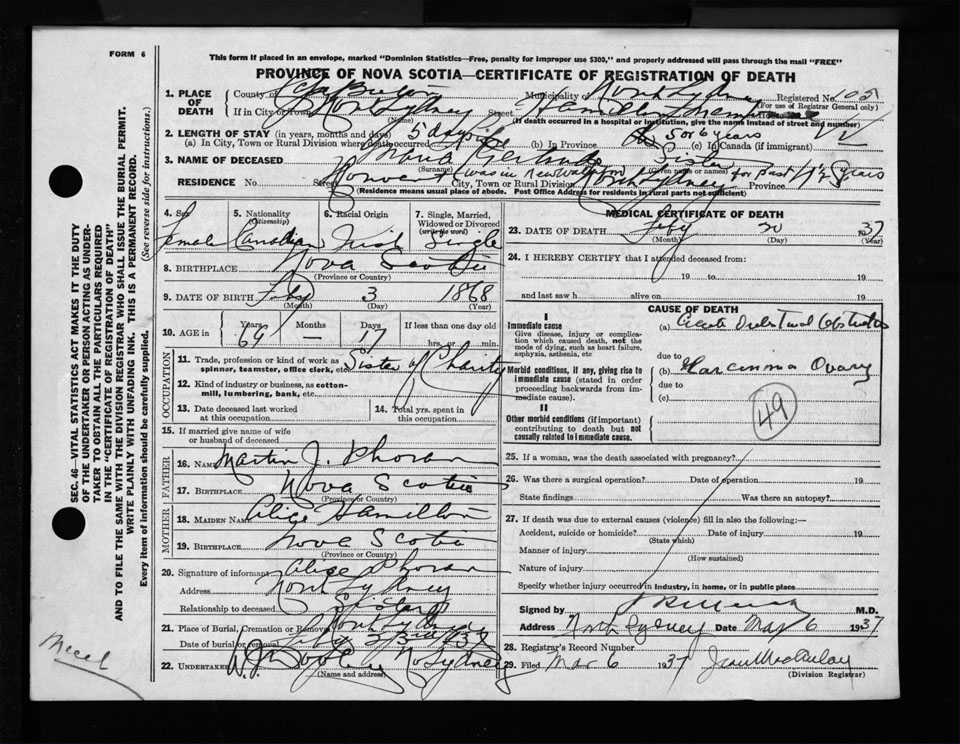 FORM 6
This form if placed in an envelope, marked "Dominion Statistics—Free, penalty for improper use $300," and properly addressed will pass through the mail "FREE"
PROVINCE OF NOVA SCOTIA—CERTIFICATE OF REGISTRATION OF DEATH
1. PLACE OF DEATH
County of Cape Breton Municipality of North Sydney Registered No. 105
(For use of Registrar General only)
If in City or Town North Sydney Street Hamilton
(Name) (If death occurred in a hospital or institution, give the name instead of street and number)
2. LENGTH OF STAY (in years, months and days)
(a) In City, Town or Rural Division where death occurred 5 days (b) In Province (c) In Canada (if immigrant)
5 or 6 years
3. NAME OF DECEASED Maria Gertrude Sister
(Surname) (Given name or names)
was in New Waterford for past 4 1/2 years
RESIDENCE No. Street Convent City, Town or Rural Division North Sydney Province
(Residence means usual place of abode. Post Office Address for residents in rural parts not sufficient)
4. Sex Female
5. Nationality (Citizenship) Canadian
6. Racial Origin Irish
7. Single, Married, Widowed or Divorced (write the word) Single
8. BIRTHPLACE Nova Scotia
(Province or Country)
9. DATE OF BIRTH Feby 3 1868
(Month) (Day) (Year)
10. AGE in Years 69 Months — Days 17 If less than one day old hrs. or min.
OCCUPATION
11. Trade, profession or kind of work as spinner, teamster, office clerk, etc. Sister of Charity
12. Kind of industry or business, as cotton-mill, lumbering, bank, etc.
13. Date deceased last worked at this occupation
14. Total yrs. spent in this occupation
15. If married give name of wife or husband of deceased
FATHER
16. NAME Martin J. Phoran
17. BIRTHPLACE Nova Scotia
(Province or Country)
MOTHER
18. MAIDEN NAME Alice Hamilton
19. BIRTHPLACE Nova Scotia
(Province or Country)
20. Signature of informant Alice Phoran
Address North Sydney
Relationship to deceased Sister
21. Place of Burial, Cremation or Removal North Sydney
Date of burial or removal Feby 23rd 1937
22. UNDERTAKER No Sydney
(Name and address)
MEDICAL CERTIFICATE OF DEATH
23. DATE OF DEATH Feby 20 1937
(Month) (Day) (Year)
24. I HEREBY CERTIFY that I attended deceased from:
19 to 19
and last saw h alive on 19
CAUSE OF DEATH
I
Immediate cause
Give disease, injury or complication which caused death, not the mode of dying, such as heart failure, asphyxia, asthenia, etc
(a) Acute Intestinal Obstruction
due to
Morbid conditions, if any, giving rise to immediate cause (stated in order proceeding backwards from immediate cause).
(b) Carcinoma Ovary
due to
(c)
II
Other morbid conditions (if important) contributing to death but not causally related to immediate cause.
49
25. If a woman, was the death associated with pregnancy?
26. Was there a surgical operation? Date of operation 19
State findings Was there an autopsy?
27. If death was due to external causes (violence) fill in also the following:—
Accident, suicide or homicide? Date of injury 19
(State which)
Manner of injury
(How sustained)
Nature of injury
Specify whether injury occurred in industry, in home, or in public place
Signed by M.D.
Address North Sydney Date Mar 6 1937
28. Registrar's Record Number
29. Filed Mar 6 1937
(Division Registrar)
SEC. 46—VITAL STATISTICS ACT MAKES IT THE DUTY
OF THE UNDERTAKER OR PERSON ACTING AS UNDER-
TAKER TO OBTAIN ALL THE PARTICULARS REQUIRED
IN THE "CERTIFICATE OF REGISTRATION OF DEATH"
AND TO FILE THE SAME WITH THE DIVISION REGISTRAR WHO SHALL ISSUE THE BURIAL PERMIT.
WRITE PLAINLY WITH UNFADING INK. THIS IS A PERMANENT RECORD.
Every item of information should be carefully supplied. (See reverse side for instructions.)